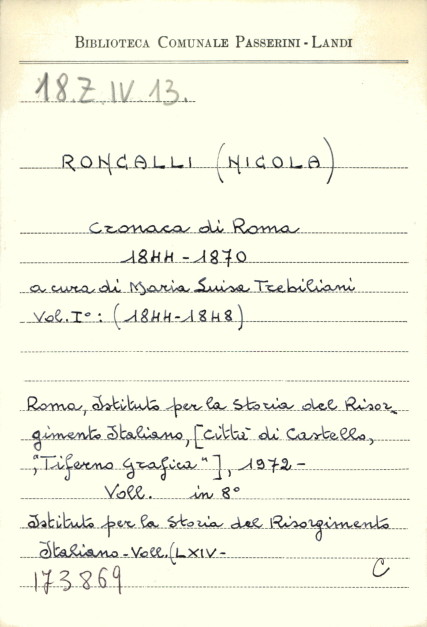 BIBLIOTECA COMUNALE PASSERINI - LANDI
18.Z.IV.13.
RONCALLI (NICOLA)
Cronaca di Roma
1844 - 1870
a cura di Maria Luisa Trebiliani
Vol. I°: (1844-1848)
Roma, Istituto per la Storia del Risor-
gimento Italiano, [Città di Castello,
"Tiferno Grafica"], 1972 -
Voll. in 8°
Istituto per la Storia del Risorgimento
Italiano - Voll. (LXIV-
173869 C